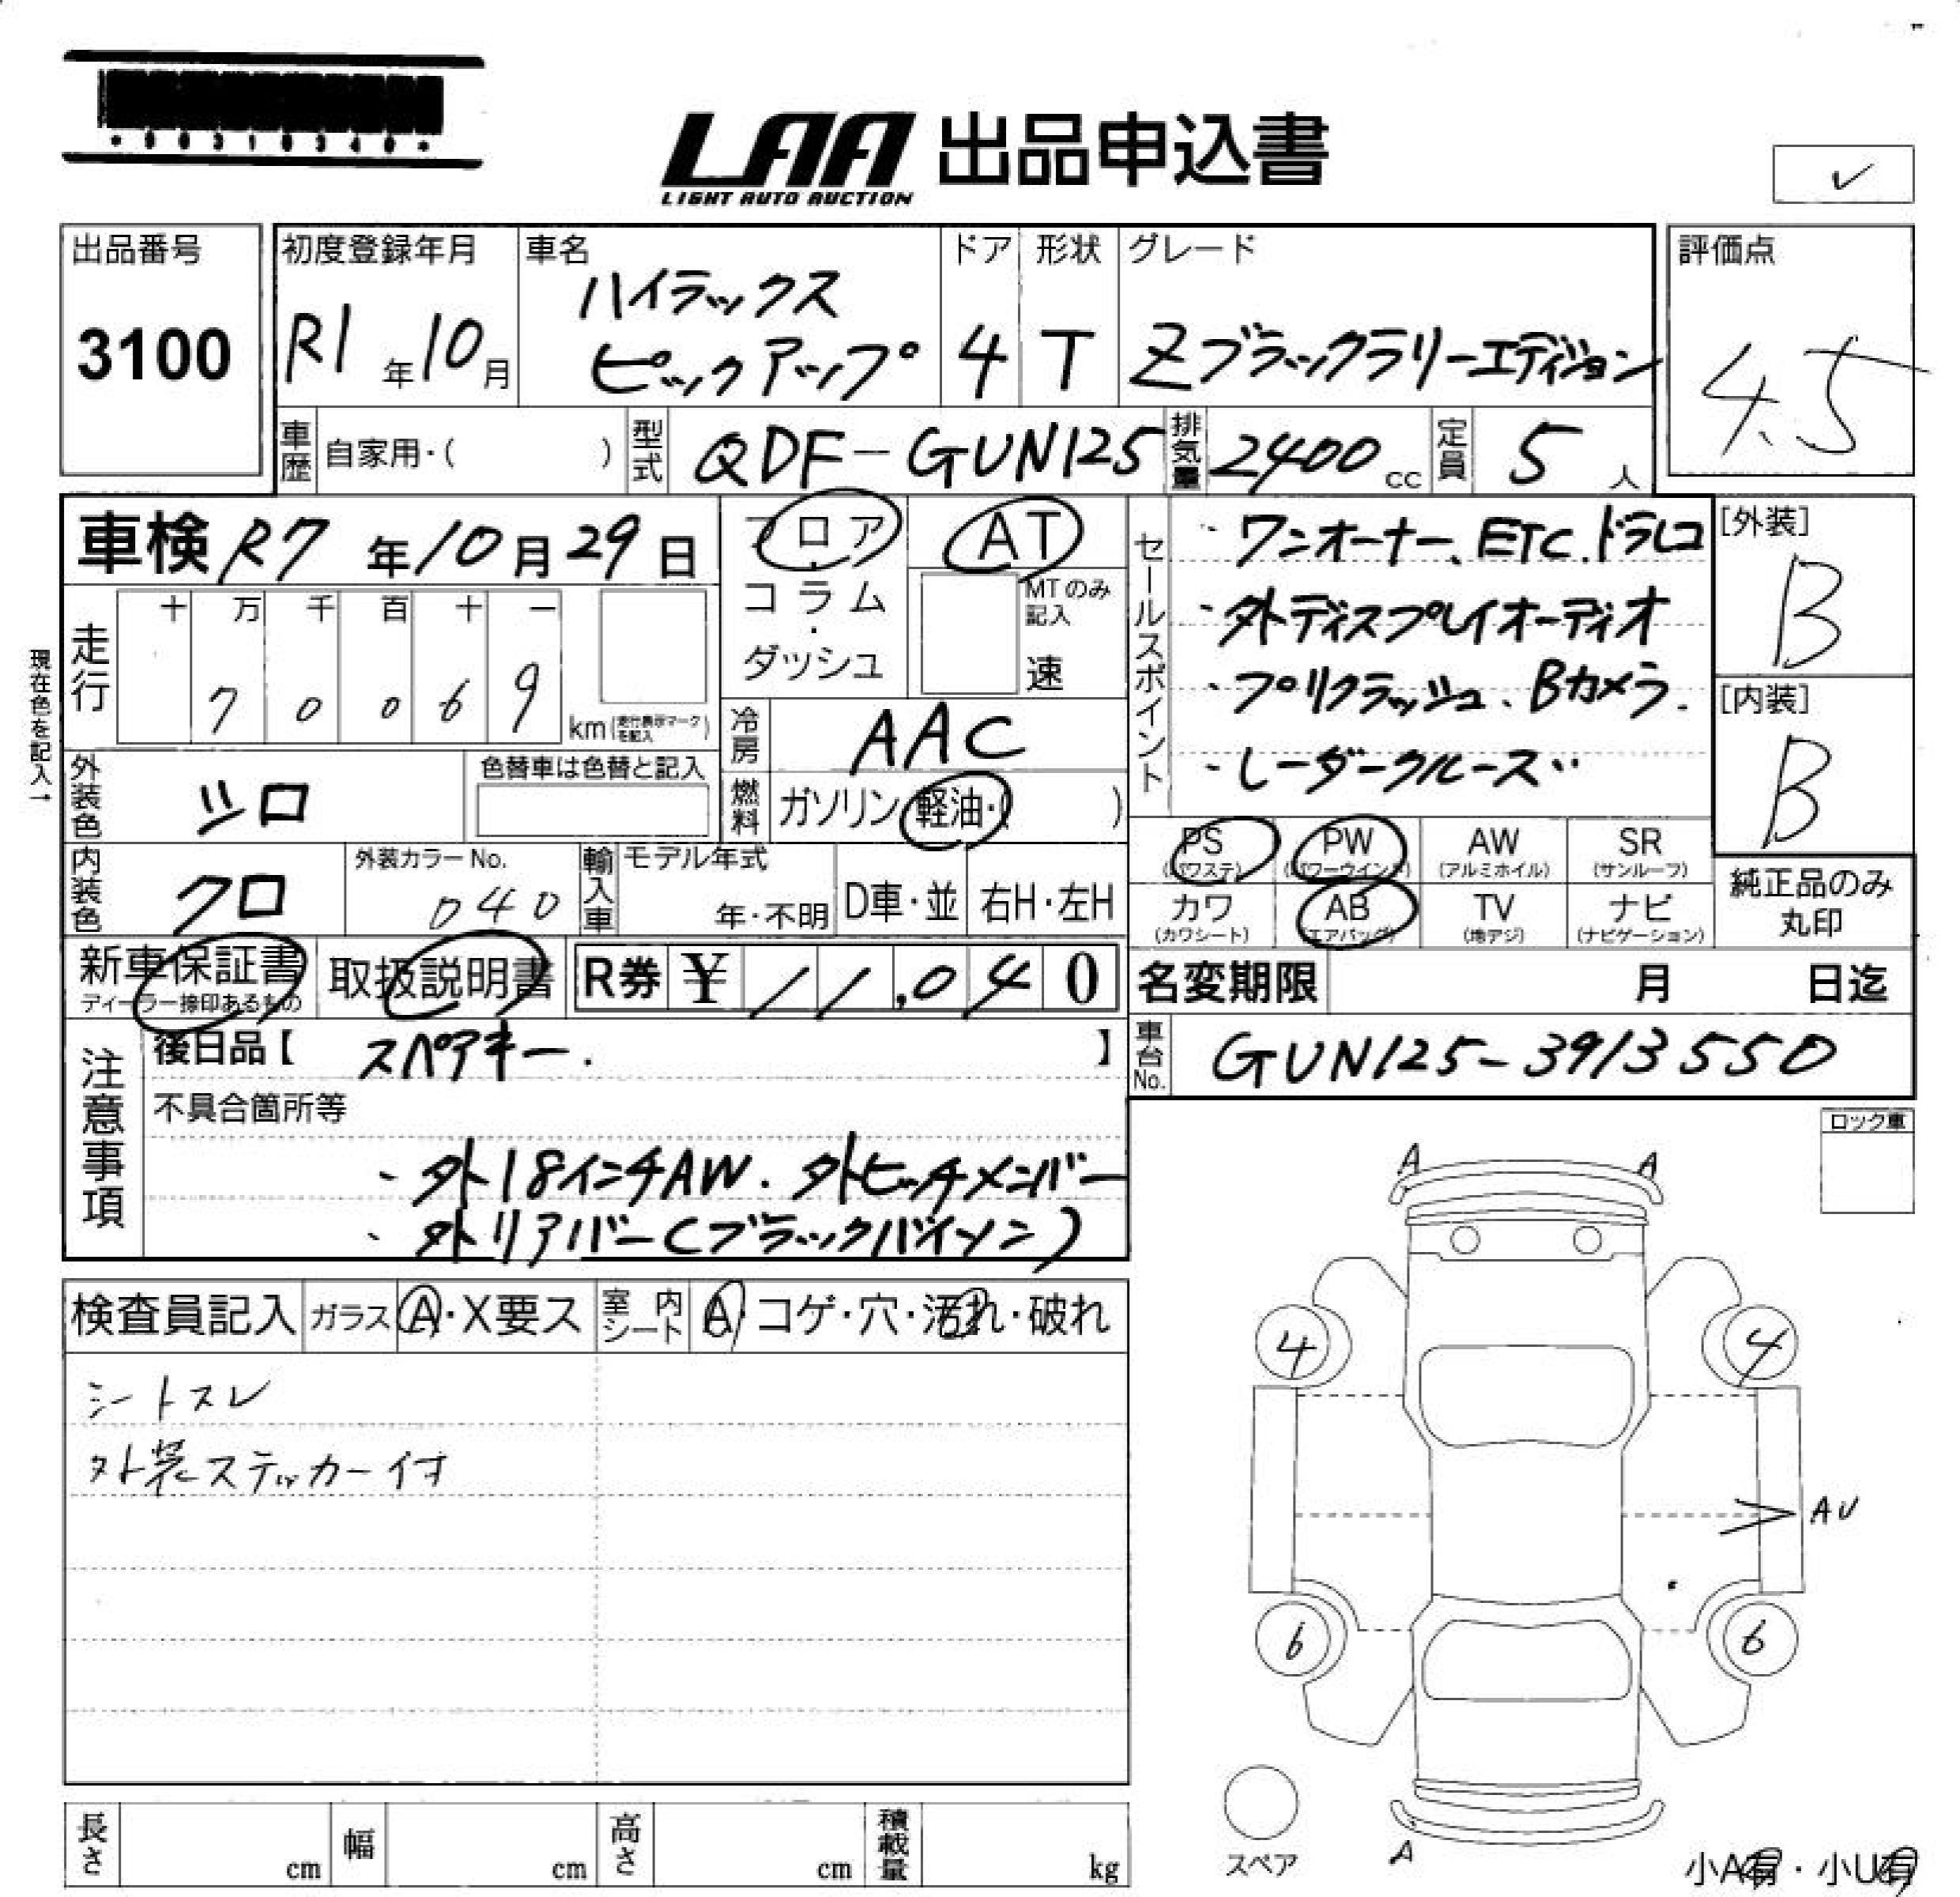 LAA 出品申込書
LIGHT AUTO AUCTION
✓
出品番号
3100
初度登録年月
R1年10月
車名
ハイラックス
ピックアップ
ドア
4
形状
T
グレード
Zブラックラリーエディション
評価点
4.5
車歴 自家用・( )
型式 QDF-GUN125
排気量 2400cc
定員 5人
車検 R7年10月29日
現在色を記入→
走行
十 万 千 百 十 一
7 0 0 6 9
km(走行表示マークを記入)
フロア・
コラム・
ダッシュ
AT
MTのみ記入
速
冷房 AAC
燃料 ガソリン・軽油・( )
セールスポイント
・ワンオーナー、ETC、ドラレコ
・外ディスプレイオーディオ
・プリクラッシュ、Bカメラ、
・レーダークルーズ
[外装]
B
[内装]
B
外装色 シロ
色替車は色替と記入
内装色 クロ
外装カラーNo.
040
輸入車 モデル年式
年・不明
D車・並
右H・左H
PS
(パワステ)
PW
(パワーウインド)
AW
(アルミホイル)
SR
(サンルーフ)
カワ
(カワシート)
AB
(エアバッグ)
TV
(地デジ)
ナビ
(ナビゲーション)
純正品のみ
丸印
新車保証書
ディーラー捺印あるもの
取扱説明書
R券 ¥ 11,040
名変期限 月 日迄
車台No. GUN125-3913550
注意事項
後日品【 スペアキー. 】
不具合箇所等
・外18インチAW. 外ヒッチメンバー
・外リアバー(ブラックバイソン)
ロック車
検査員記入
ガラス A・X要ス
室内シート A・コゲ・穴・汚れ・破れ
シートスレ
外装ステッカー付
A A
4 4
AU
6 6
A
スペア
小A有・小U有
長さ cm
幅 cm
高さ cm
積載量 kg